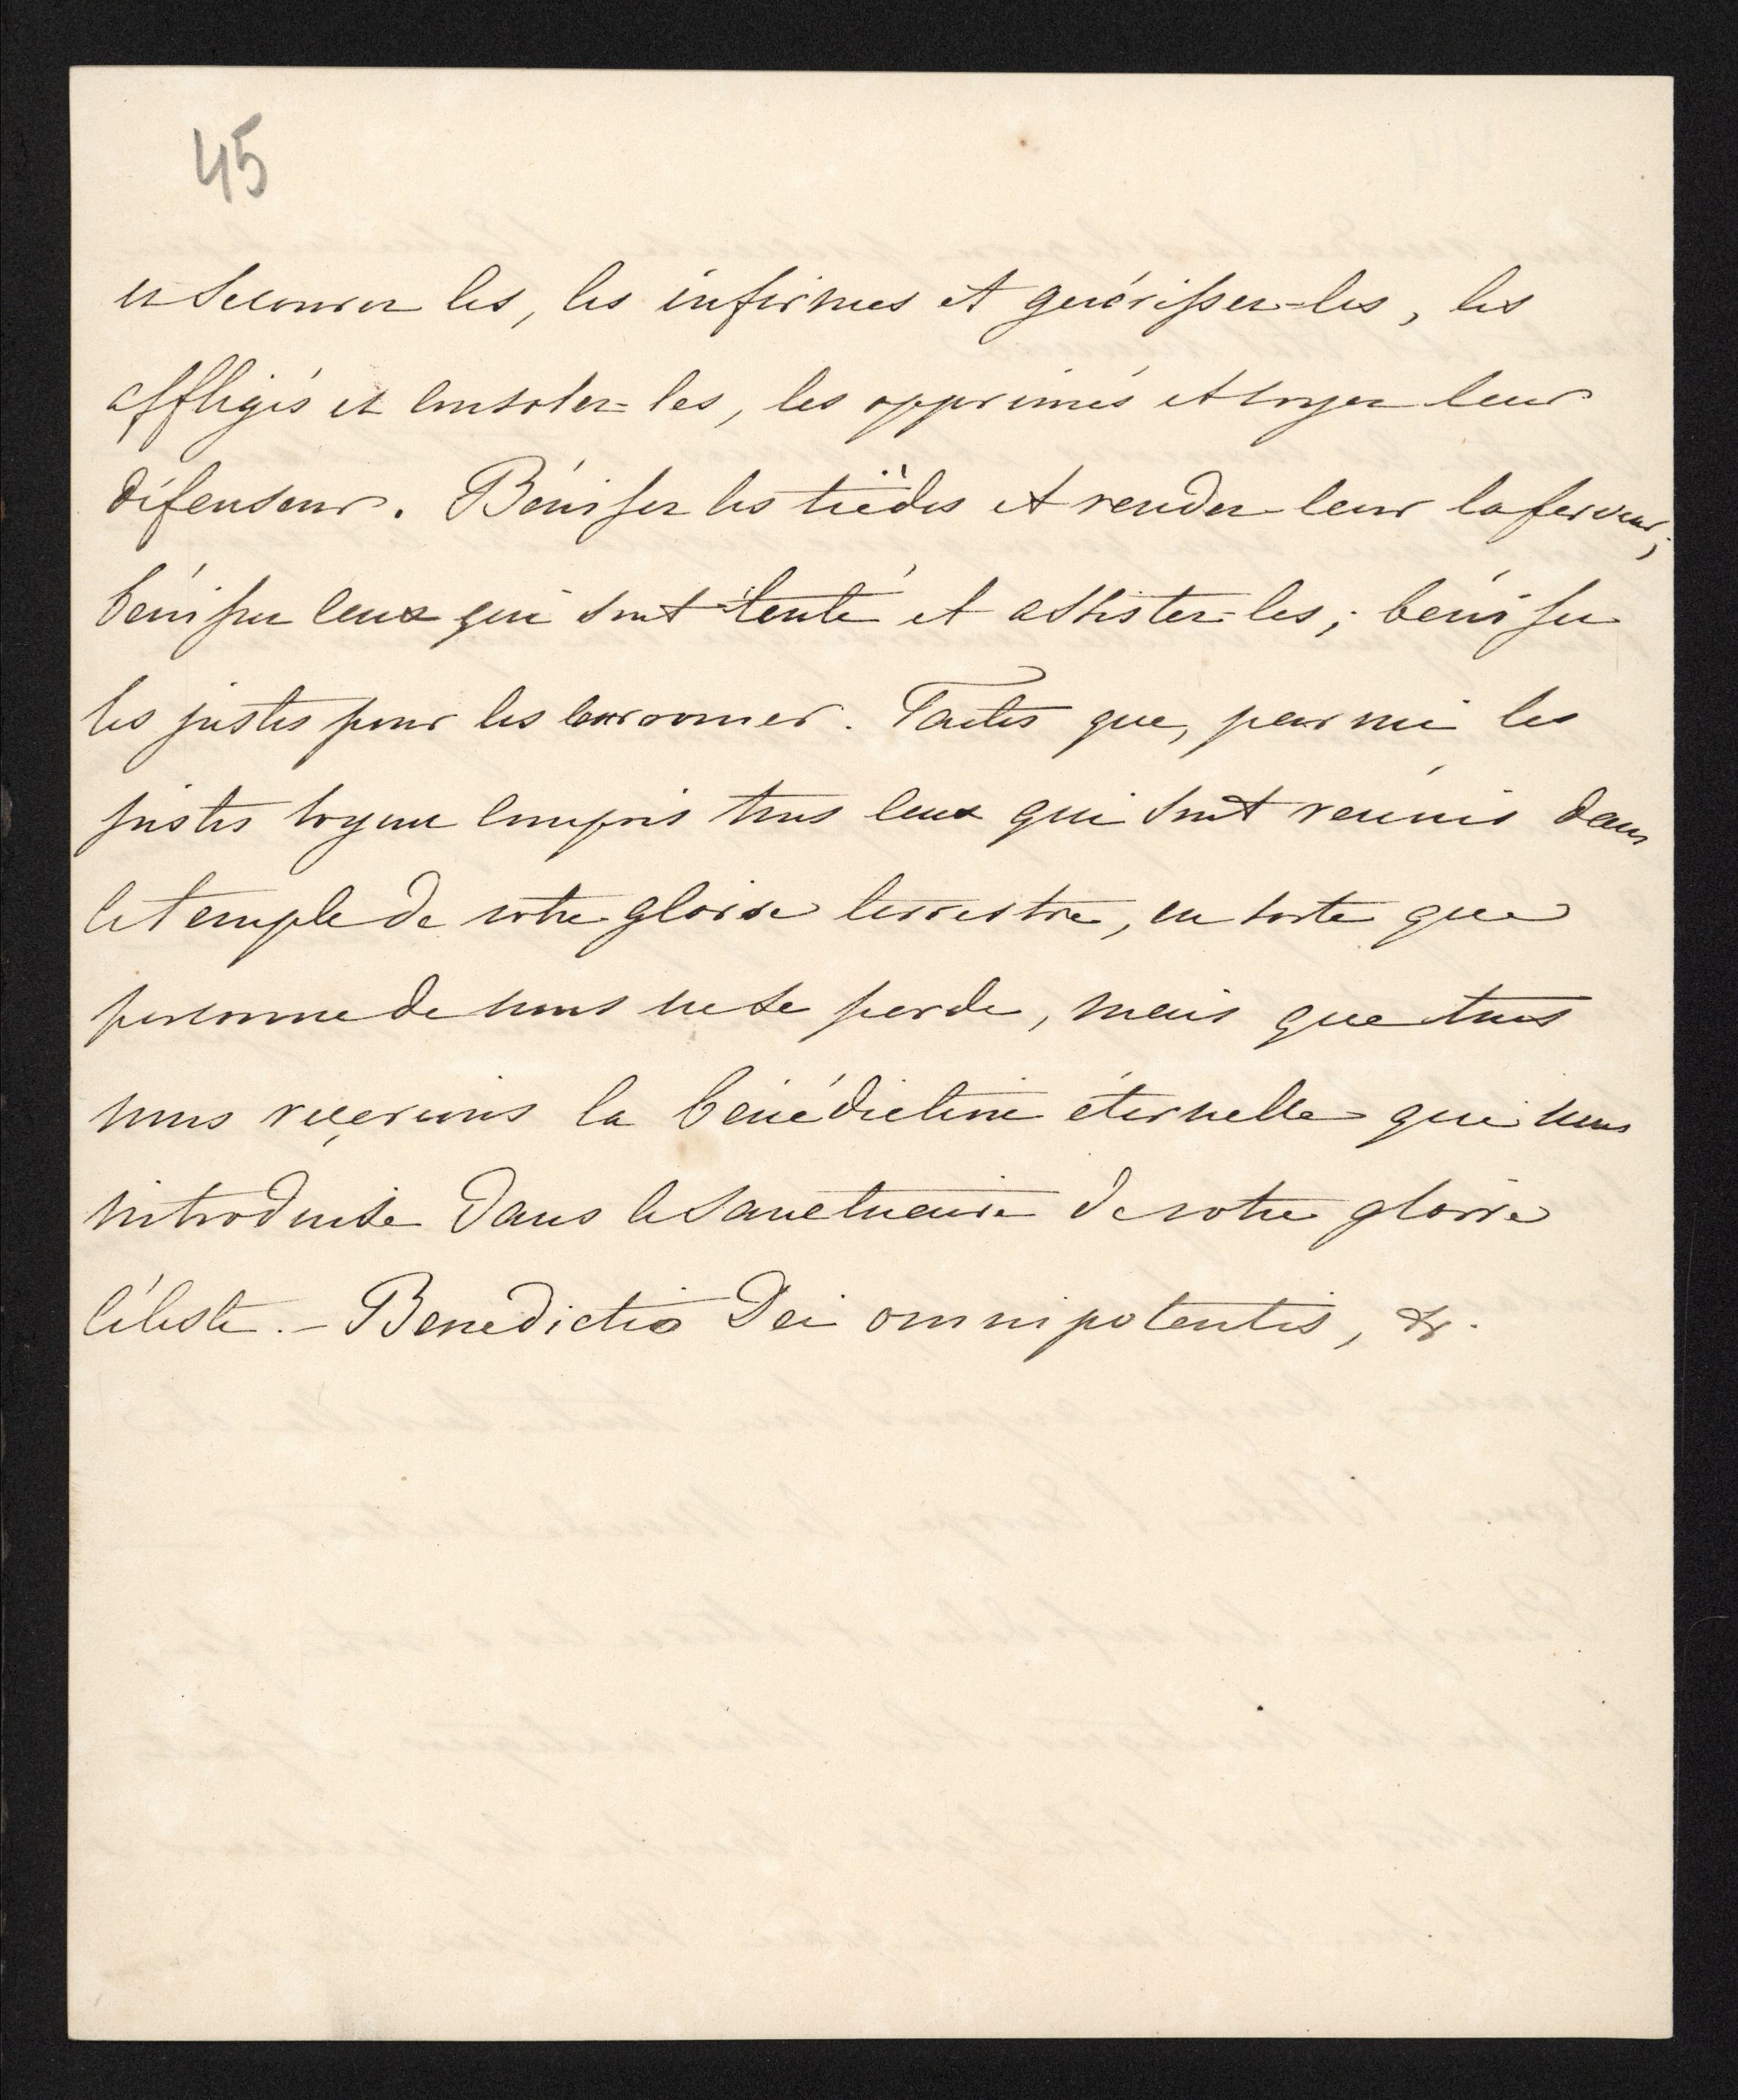 45
et secourez les, les infirmes et guérissez-les, les
affligés et consolez-les, les opprimés et soyez leur
défenseur. Bénissez les tièdes et rendez leur la ferveur;
bénissez ceux qui sont tenté et assistez-les; bénissez
les justes pour les couronner. Faites que, parmi les
justes soyent compris tous ceux qui sont réunis dans
le temple de votre gloire terrestre, en sorte que
personne de nous ne se perde, mais que tous
nous recevions la bénédiction éternelle qui nous
introduise dans le Sanctuaire de votre gloire
céleste. - Benedictio Dei omnipotentis, &.